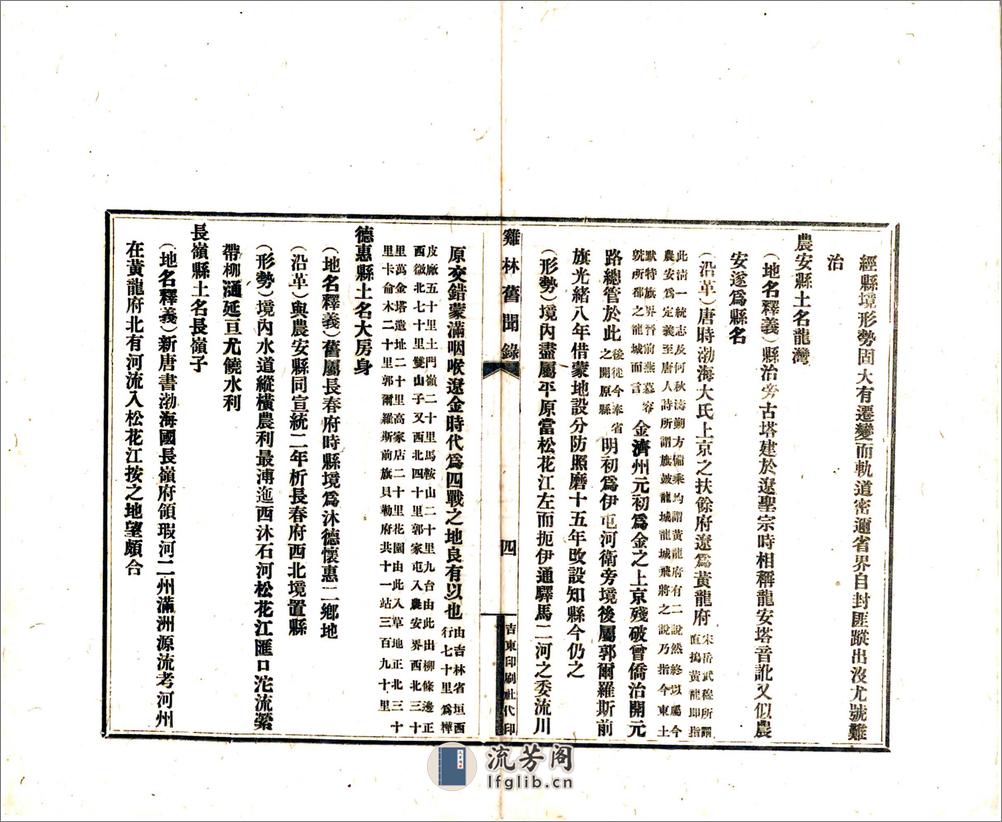 經縣境形勢固大有遷變而軌道密邇省界自封匪蹤出沒尤號難
治
農安縣土名龍灣
（地名釋義）縣治旁古塔建於遼聖宗時相稱龍安塔音訛又似農
安遂爲縣名
（沿革）唐時渤海大氏上京之扶餘府遼爲黃龍府宋岳武穆所謂
直搗黃龍卽指
此清一統志及何秋濤朔方備乘均謂黃龍府有二說然終以屬今
農安爲定義至唐人詩所謂旗皷龍城龍城飛將之說乃指今東土
默特旗界晉前燕慕容
皝所都之龍城而言
金濟州元初爲金之上京殘破曾僑治開元
路總管於此後徙今奉省
之開原縣
明初爲伊屯河衛旁境後屬郭爾羅斯前
旗光緒八年借蒙地設分防照磨十五年改設知縣今仍之
（形勢）境內盡屬平原當松花江左而扼伊通驛馬二河之委流川
雞林舊聞錄
四
吉東印刷社代印
原交錯蒙滿咽喉遼金時代爲四戰之地良有以也由吉林省垣西
行七十里爲樺
皮廠五十里土門嶺二十里馬鞍山二十里九台由此出柳條邊正
西微北七十里雙山子又西北四十里郭家屯入農安界西北三十
里萬金塔遺址二十里高家店二十里花園由此入草地正北三十
里卡倫木二十里郭爾羅斯前旗貝勒府共十一站三百九十里
德惠縣土名大房身
（地名釋義）舊屬長春府時縣境爲沐德懷惠二鄉地
（沿革）與農安縣同宣統二年析長春府西北境置縣
（形勢）境內水道縱橫農利最溥迤西沐石河松花江匯口沱流縈
帶柳通延亘尤饒水利
長嶺縣土名長嶺子
（地名釋義）新唐書渤海國長嶺府領瑕河二州滿洲源流考河州
在黃龍府北有河流入松花江按之地望頗合
流芳阁
lfglib.com